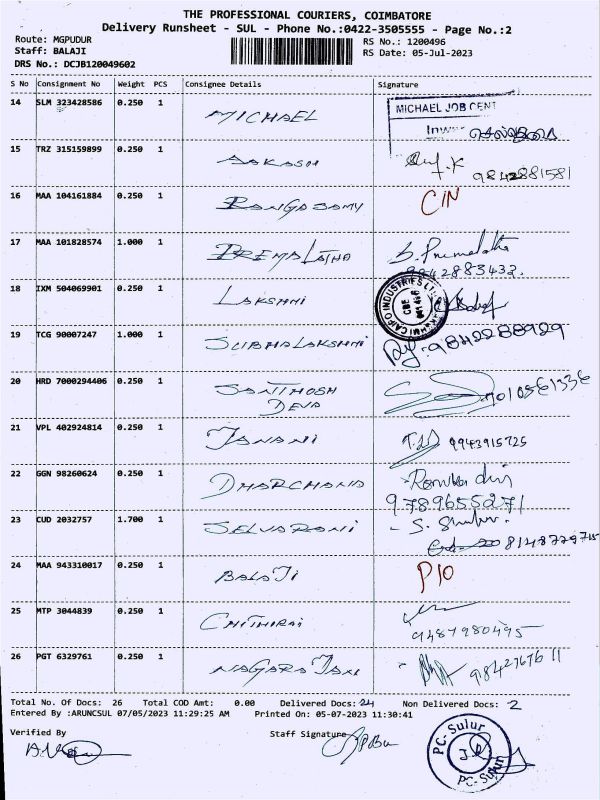 THE PROFESSIONAL COURIERS, COIMBATORE
Delivery Runsheet - SUL - Phone No.:0422-3505555 - Page No.:2
Route: MGPUDUR
RS No.: 1200496
Staff: BALAJI
RS Date: 05-Jul-2023
DRS No.: DCJB120049602
S No Consignment No Weight PCS Consignee Details Signature
14 SLM 323428586 0.250 1 MICHAEL MICHAEL JOB CENT
15 TRZ 315159899 0.250 1 AAKASH K 9842881581
16 MAA 104161884 0.250 1 RANGASAMY C/N
17 MAA 101828574 1.000 1 PREMALATHA S. Premalatha
9842883433.
18 IXM 504069901 0.250 1 LAKSHMI
19 TCG 90007247 1.000 1 SUBHALAKSHMI 9842288929
20 HRD 7000294406 0.250 1 SANTHOSH
DEVA
21 VPL 402924814 0.250 1 JANANI 9943915725
22 GGN 98260624 0.250 1 DHARCHANA
9789655271
23 CUD 2032757 1.700 1 SELVARANI
24 MAA 943310017 0.250 1 BALAJI P10
25 MTP 3044839 0.250 1 CHITHIRAI
9487980495
26 PGT 6329761 0.250 1 NAGARAJAN
Total No. Of Docs: 26 Total COD Amt: 0.00 Delivered Docs: 24 Non Delivered Docs: 2
Entered By :ARUNCSUL 07/05/2023 11:29:25 AM Printed On: 05-07-2023 11:30:41
Verified By
Staff Signature
PC-Sulur
PC-Sulur